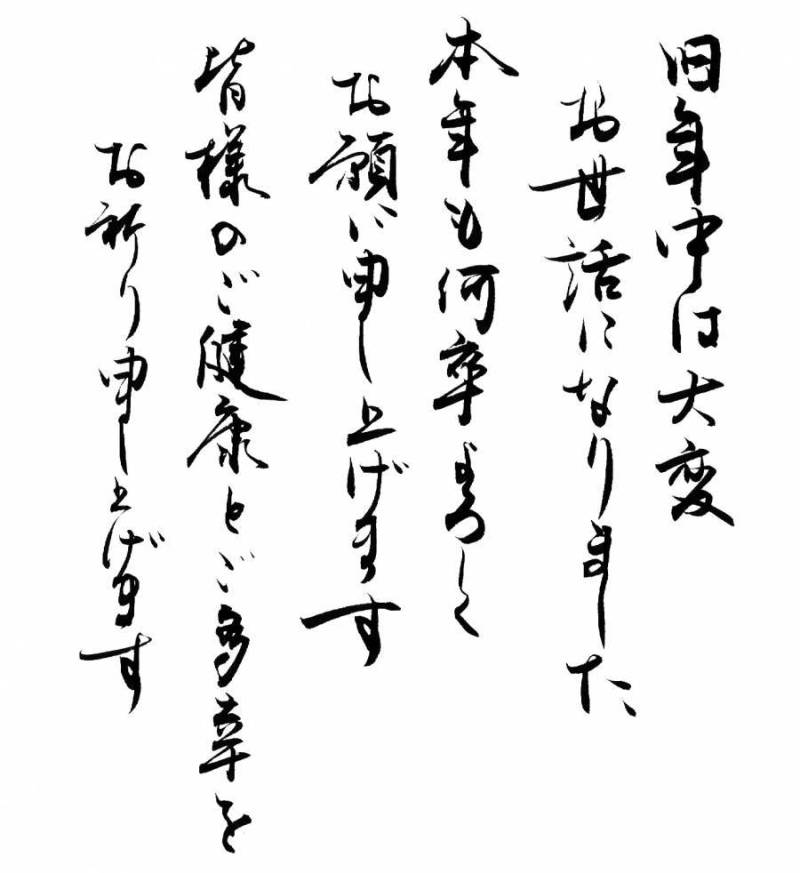 旧年中は大変
お世話になりました
本年も何卒よろしく
お願い申し上げます
皆様のご健康とご多幸を
お祈り申し上げます